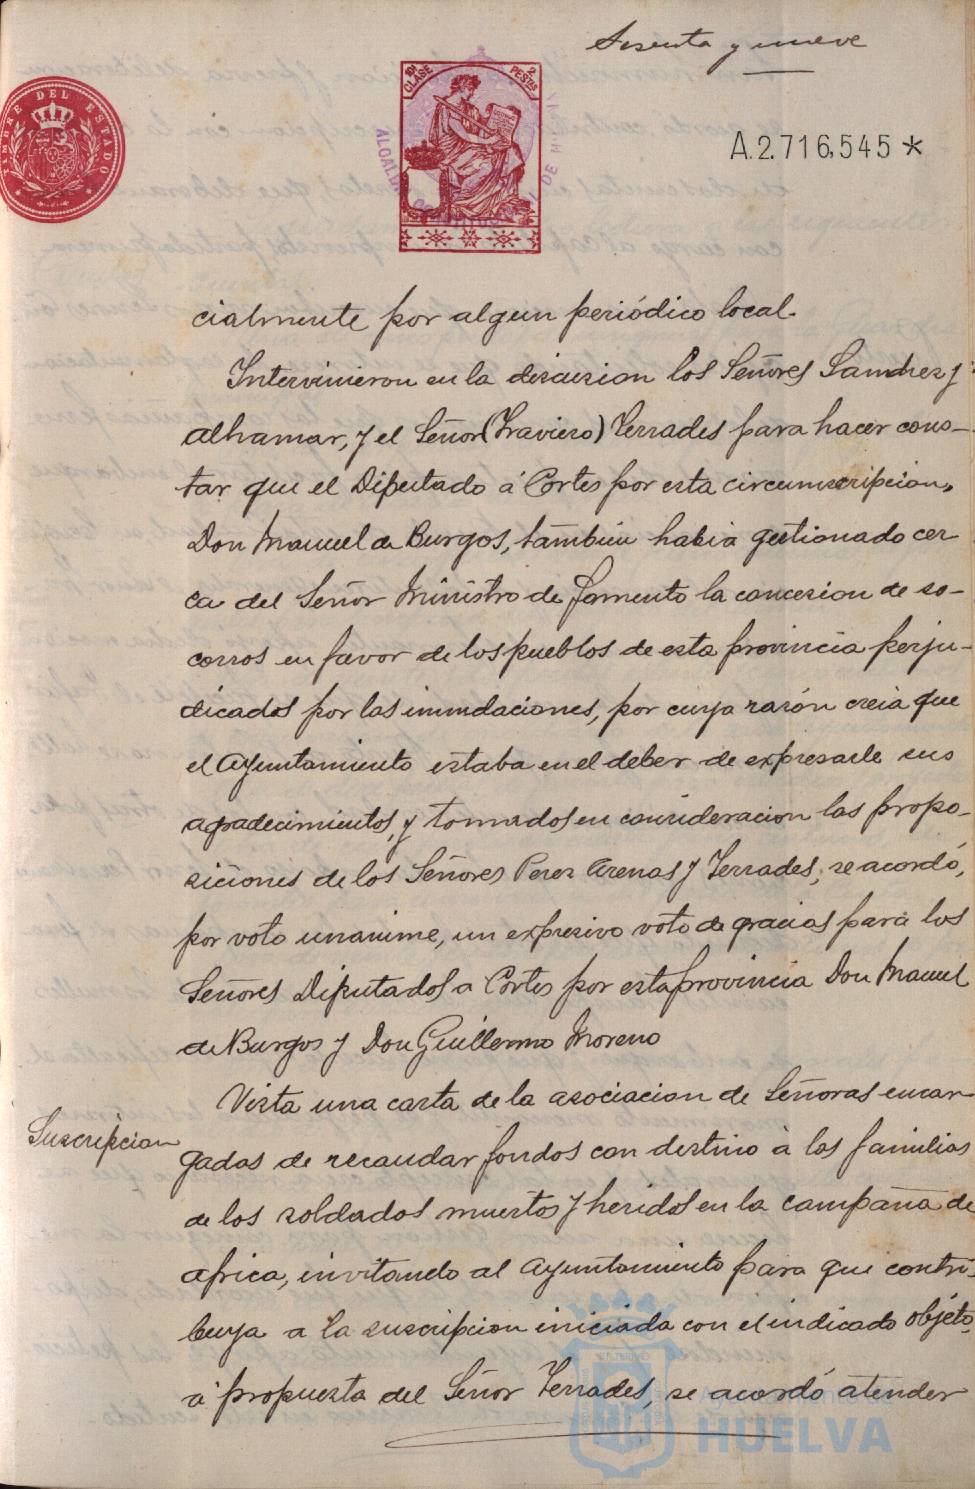 Sesenta y nueve
TIMBRE DEL ESTADO
10ª CLASE
2 PESTAS
ALCALDIA
DE H
A.2.716,545*
cialmente por algun periódico local.
Intervinieron en la discusion los Señores Sanchez y
Alhamar, y el Señor (Traviero) Terrades para hacer cons-
tar que el Diputado á Cortes por esta circumscripcion,
Don Manuel de Burgos, tambien habia gestionado cer-
ca del Señor Ministro de Fomento la concesion de so-
corros en favor de los pueblos de esta provincia perju-
dicados por las inundaciones, por cuya razón creia que
el Ayuntamiento estaba en el deber de expresarle sus
agradecimientos, y tomados en consideracion las propo-
siciones de los Señores Perez Arenas y Terrades, se acordó,
por voto unanime, un expresivo voto de gracias para los
Señores Diputados a Cortes por esta provincia Don Manuel
de Burgos y Don Guillermo Moreno
Vista una carta de la asociacion de Señoras encar
Suscripcion
gadas de recaudar fondos con destino à las familias
de los soldados muertos y heridos en la campaña de
Africa, invitando al Ayuntamiento para que contri-
buya a la suscripcion iniciada con el indicado objeto,
á propuesta del Señor Terrades, se acordó atender
Ayuntamiento de
HUELVA